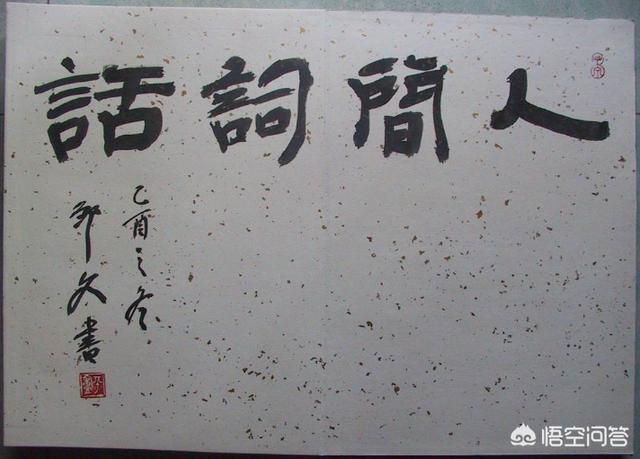 人間詞話
乙酉之冬
邹文書
悟空问答